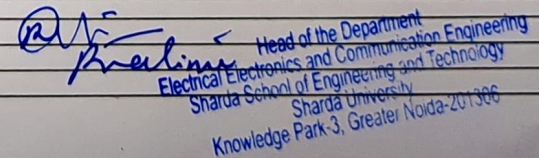 Head of the Department
Electrical Electronics and Communication Engineering
Sharda School of Engineering and Technology
Sharda University
Knowledge Park-3, Greater Noida-201306